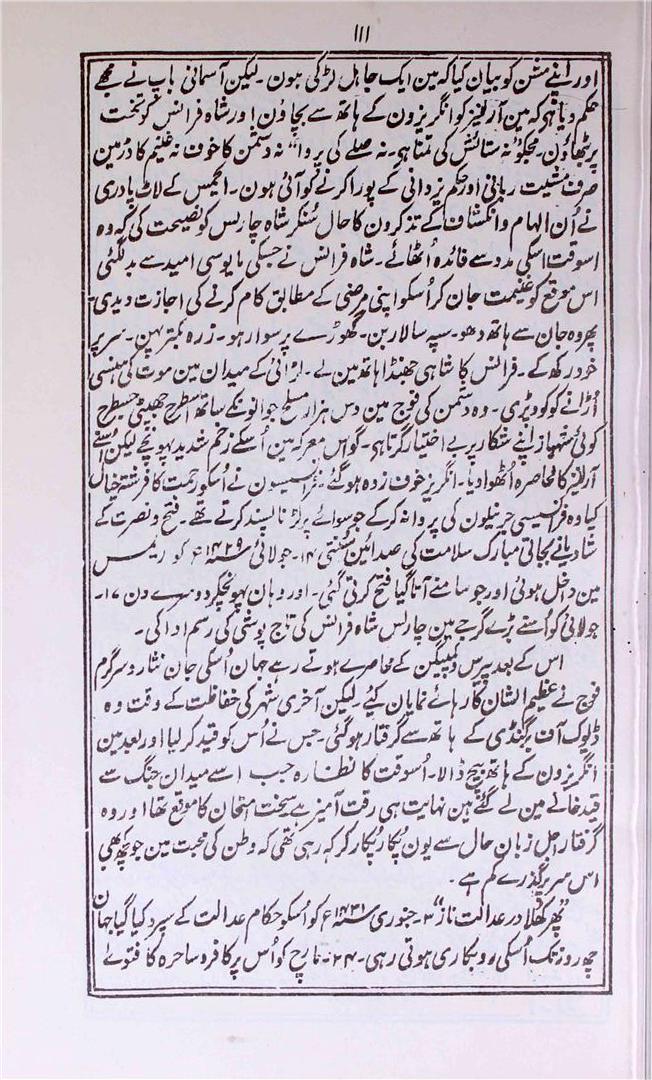 ۱۱۱
اور اپنے مشن کو بیان کیا کہ مین ایک جاہل لڑکی ہون ۔ لیکن آسمانی باپ نے مجھے
حکم دیا ہی کہ مین آرلینز کو انگریزون کے ہاتھ سے بچاؤن اور شاہ فرانس کو تخت
پر بٹھاؤن ۔ مجکو "نہ ستائش کی تمنا ہی ۔ نہ صلے کی پروا" نہ دشمن کا خوف نہ غنیم کا ڈر مین
صرف مشیت ربانی اور حکم یزدانی کے پورا کرنے کو آئی ہون ۔ الجمیس کے لاٹ پادری
نے اُن الہام وانکشاف کے تذکرون کا حال سُنکر شاہ چارلس کو نصیحت کی کہ وہ
اسوقت اسکی مدد سے فائدہ اُٹھائے ۔ شاہ فرانس نے جسکی مایوسی امید سے بدلگئی
اس موقع کو غنیمت جان کر اُسکو اپنی مرضی کے مطابق کام کرنے کی اجازت دیدی ۔
پھر وہ جان سے ہاتھ دھو ۔ سپہ سالار بن ۔ گھوڑے پر سوار ہو ۔ زرہ بکتر پہن ۔ سر پر
خود رکھ کے ۔ فرانس کا شاہی جھنڈا ہاتھ مین لے ۔ لڑائی کے میدان مین موت کی ہنسی
اُڑانے کو کود پڑی ۔ وہ دشمن کی فوج مین دس ہزار مسلح جوانونکے ساتھ اسطرح جھپٹی جسطرح
کوئی شہباز اپنے شکار پر بے اختیار گرتا ہی ۔ گو اس معرکہ مین اُسکے زخم شدید پہونچے لیکن اُسنے
آرلینز کا محاصرہ اُٹھوا دیا ۔ انگریز خوف زدہ ہوگئے ۔ فرانسیسیون نے اُسکو رحمت کا فرشتہ خیال
کیا وہ فرانسیسی جرنیلون کی پروا نہ کر کے جو سوائے پر لڑنا پسند کرتے تھے ۔ فتح و نصرت کے
شادیانے بجاتی مبارک سلامت کی صدائین سُنتی ۱۴ ۔ جولائی سنہ ۱۴۲۹ء کو ریمس
مین داخل ہوئی اور جو سامنے آتا گیا فتح کرتی گئی ۔ اور وہان پہونچکر دوسرے دن ۱۷ ۔
جولائی کو اُسنے بڑے گرجے مین چارلس شاہ فرانس کی تاج پوشی کی رسم ادا کی ۔
اس کے بعد پیرس و کمپیگن کے محاصرے ہوتے رہے جہان اُسکی جان نثار و سرگرم
فوج نے عظیم الشان کارہائے نمایان کیئے ۔ لیکن آخری شہر کی حفاظت کے وقت وہ
ڈیوک آف برگنڈی کے ہاتھ سے گرفتار ہوگئی ۔ جس نے اُس کو قید کر لیا اور بعد مین
انگریزون کے ہاتھ بیچ ڈالا ۔ اُسوقت کا نظارہ جب اسے میدان جنگ سے
قید خانے مین لے گئے ہین نہایت ہی رقت آمیز ہے سخت امتحان کا موقع تھا اور وہ
گرفتار اجل زبان حال سے یون پُکار پُکار کر کہہ رہی تھی کہ وطن کی محبت مین جو کچھ بھی
اس سر پر گذرے کم ہے ۔
"پھر کھلا در عدالت ناز" ۳ ۔ جنوری سنہ ۱۴۳۱ء کو اُسکو حکام عدالت کے سپرد کیا گیا جہان
چھ روز تک اُسکی روبکاری ہوتی رہی ۔ ۲۴ ۔ مارچ کو اُس پر کافر و ساحرہ کا فتوئے